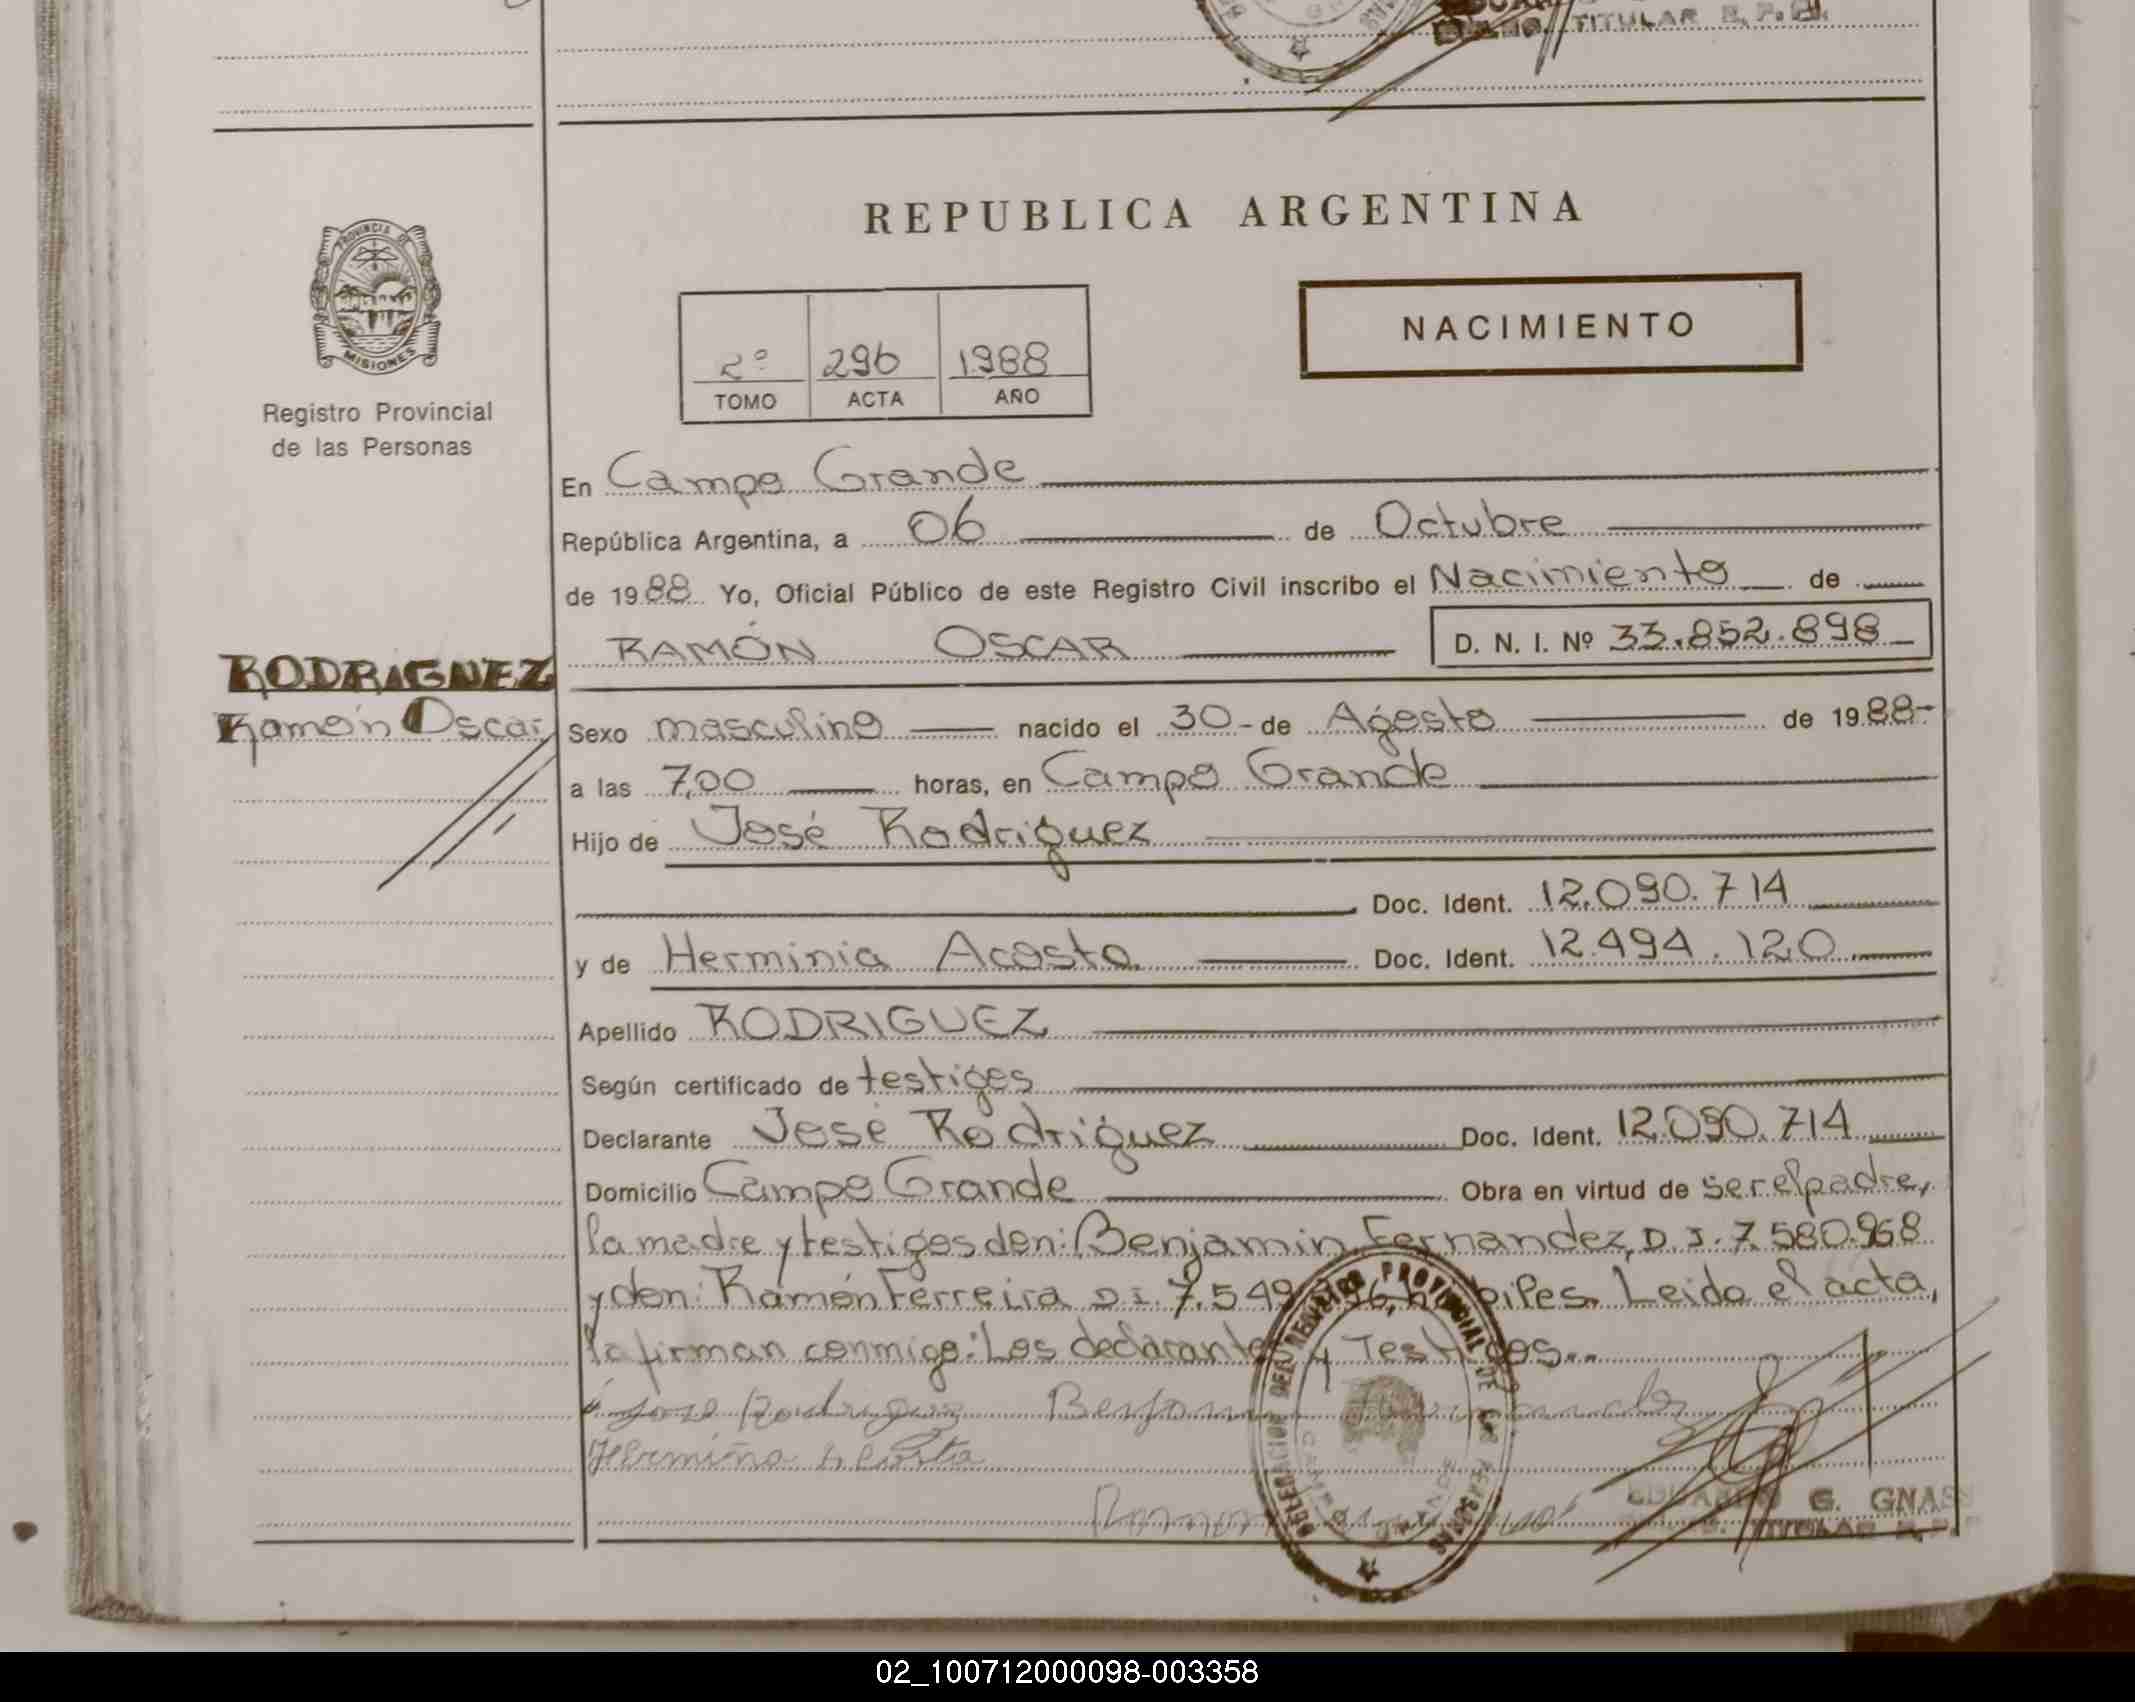 TITULAR R. P. P.
REPUBLICA ARGENTINA
PROVINCIA DE
MISIONES
Registro Provincial
de las Personas
2º 296 1988
TOMO ACTA AÑO
NACIMIENTO
En Campo Grande
República Argentina, a 06 de Octubre
de 1988 Yo, Oficial Público de este Registro Civil inscribo el Nacimiento de
RAMÓN OSCAR D. N. I. Nº 33.852.898
RODRIGUEZ
Ramón Oscar
Sexo masculino nacido el 30 de Agosto de 1988
a las 7,00 horas, en Campo Grande
Hijo de José Rodriguez
Doc. Ident. 12.090.714
y de Herminia Acosta Doc. Ident. 12.494.120
Apellido RODRIGUEZ
Según certificado de testigos
Declarante José Rodriguez Doc. Ident. 12.090.714
Domicilio Campo Grande Obra en virtud de ser el padre,
la madre y testigos don: Benjamin Fernandez, D.I. 7.580.968
y don: Ramón Ferreira D.I. 7.549 hábiles. Leida el acta,
la firman conmigo: Los declarantes y Testigos..
Jose Rodriguez Benjamin Fernandez
Herminia Acosta
Ramon
DELEGACION DEL REGISTRO PROVINCIAL DE LAS PERSONAS
CAMPO GRANDE
EDUARDO G. GNASS
TITULAR R.P.P.
02_100712000098-003358